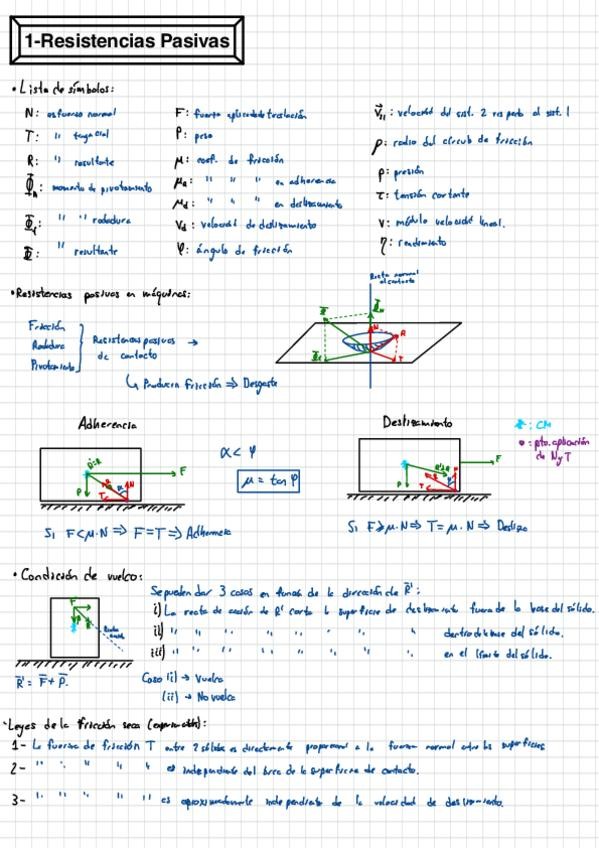 1-Resistencias Pasivas
• Lista de símbolos:
N: esfuerzo normal
T: " tangencial
R: " resultante
: momento de pivotamiento
: " " rodadura
: " resultante
F: fuerza aplicada de traslación
P: peso
μ: coef. de fricción
μa: " " " en adherencia
μd: " " " en deslizamiento
Vd: velocidad de deslizamiento
φ: ángulo de fricción
: velocidad del sist. 2 respecto al sist. 1
ρ: radio del círculo de fricción
p: presión
τ: tensión cortante
v: módulo velocidad lineal.
η: rendimiento
• Resistencias pasivas en máquinas:
Fricción
Rodadura
Pivotamiento
Resistencias pasivas →
de contacto
↳ Producen fricción ⇒ Desgaste
Recta normal
al contacto
N
R
T
Adherencia
F
P
T
N
α < φ
μ = tan φ
Deslizamiento
F
P
T
: CM
: pto. aplicación
de N y T
Si F<μ·N ⇒ F=T ⇒ Adherencia
Si F≥μ·N ⇒ T=μ·N ⇒ Desliza
• Condición de vuelco:
F
P
R'= F + P.
Se pueden dar 3 casos en función de la dirección de R':
i) La recta de acción de R' corta la superficie de deslizamiento fuera de la base del sólido.
ii) " " " " " " " " dentro de la base del sólido.
iii) " " " " " " " " en el límite del sólido.
Caso (i) → Vuelca
(ii) → No vuelca
• Leyes de la fricción seca (experimentales):
1- La fuerza de fricción T entre 2 sólidos es directamente proporcional a la fuerza normal entre las superficies
2- " " " " " es independiente del área de la superficie de contacto.
3- " " " " " es aproximadamente independiente de la velocidad de deslizamiento.